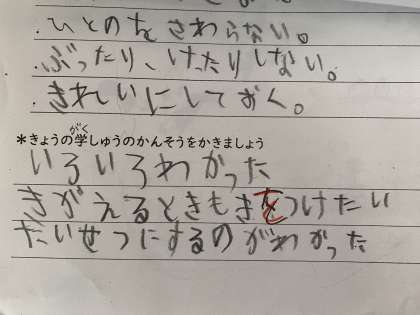 ・ひとのをさわらない。
・ぶったり、けったりしない。
・きれいにしておく。
*きょうの学しゅうのかんそうをかきましょう
がく
いろいろわかった
きがえるときもきをつけたい
たいせつにするのがわかった